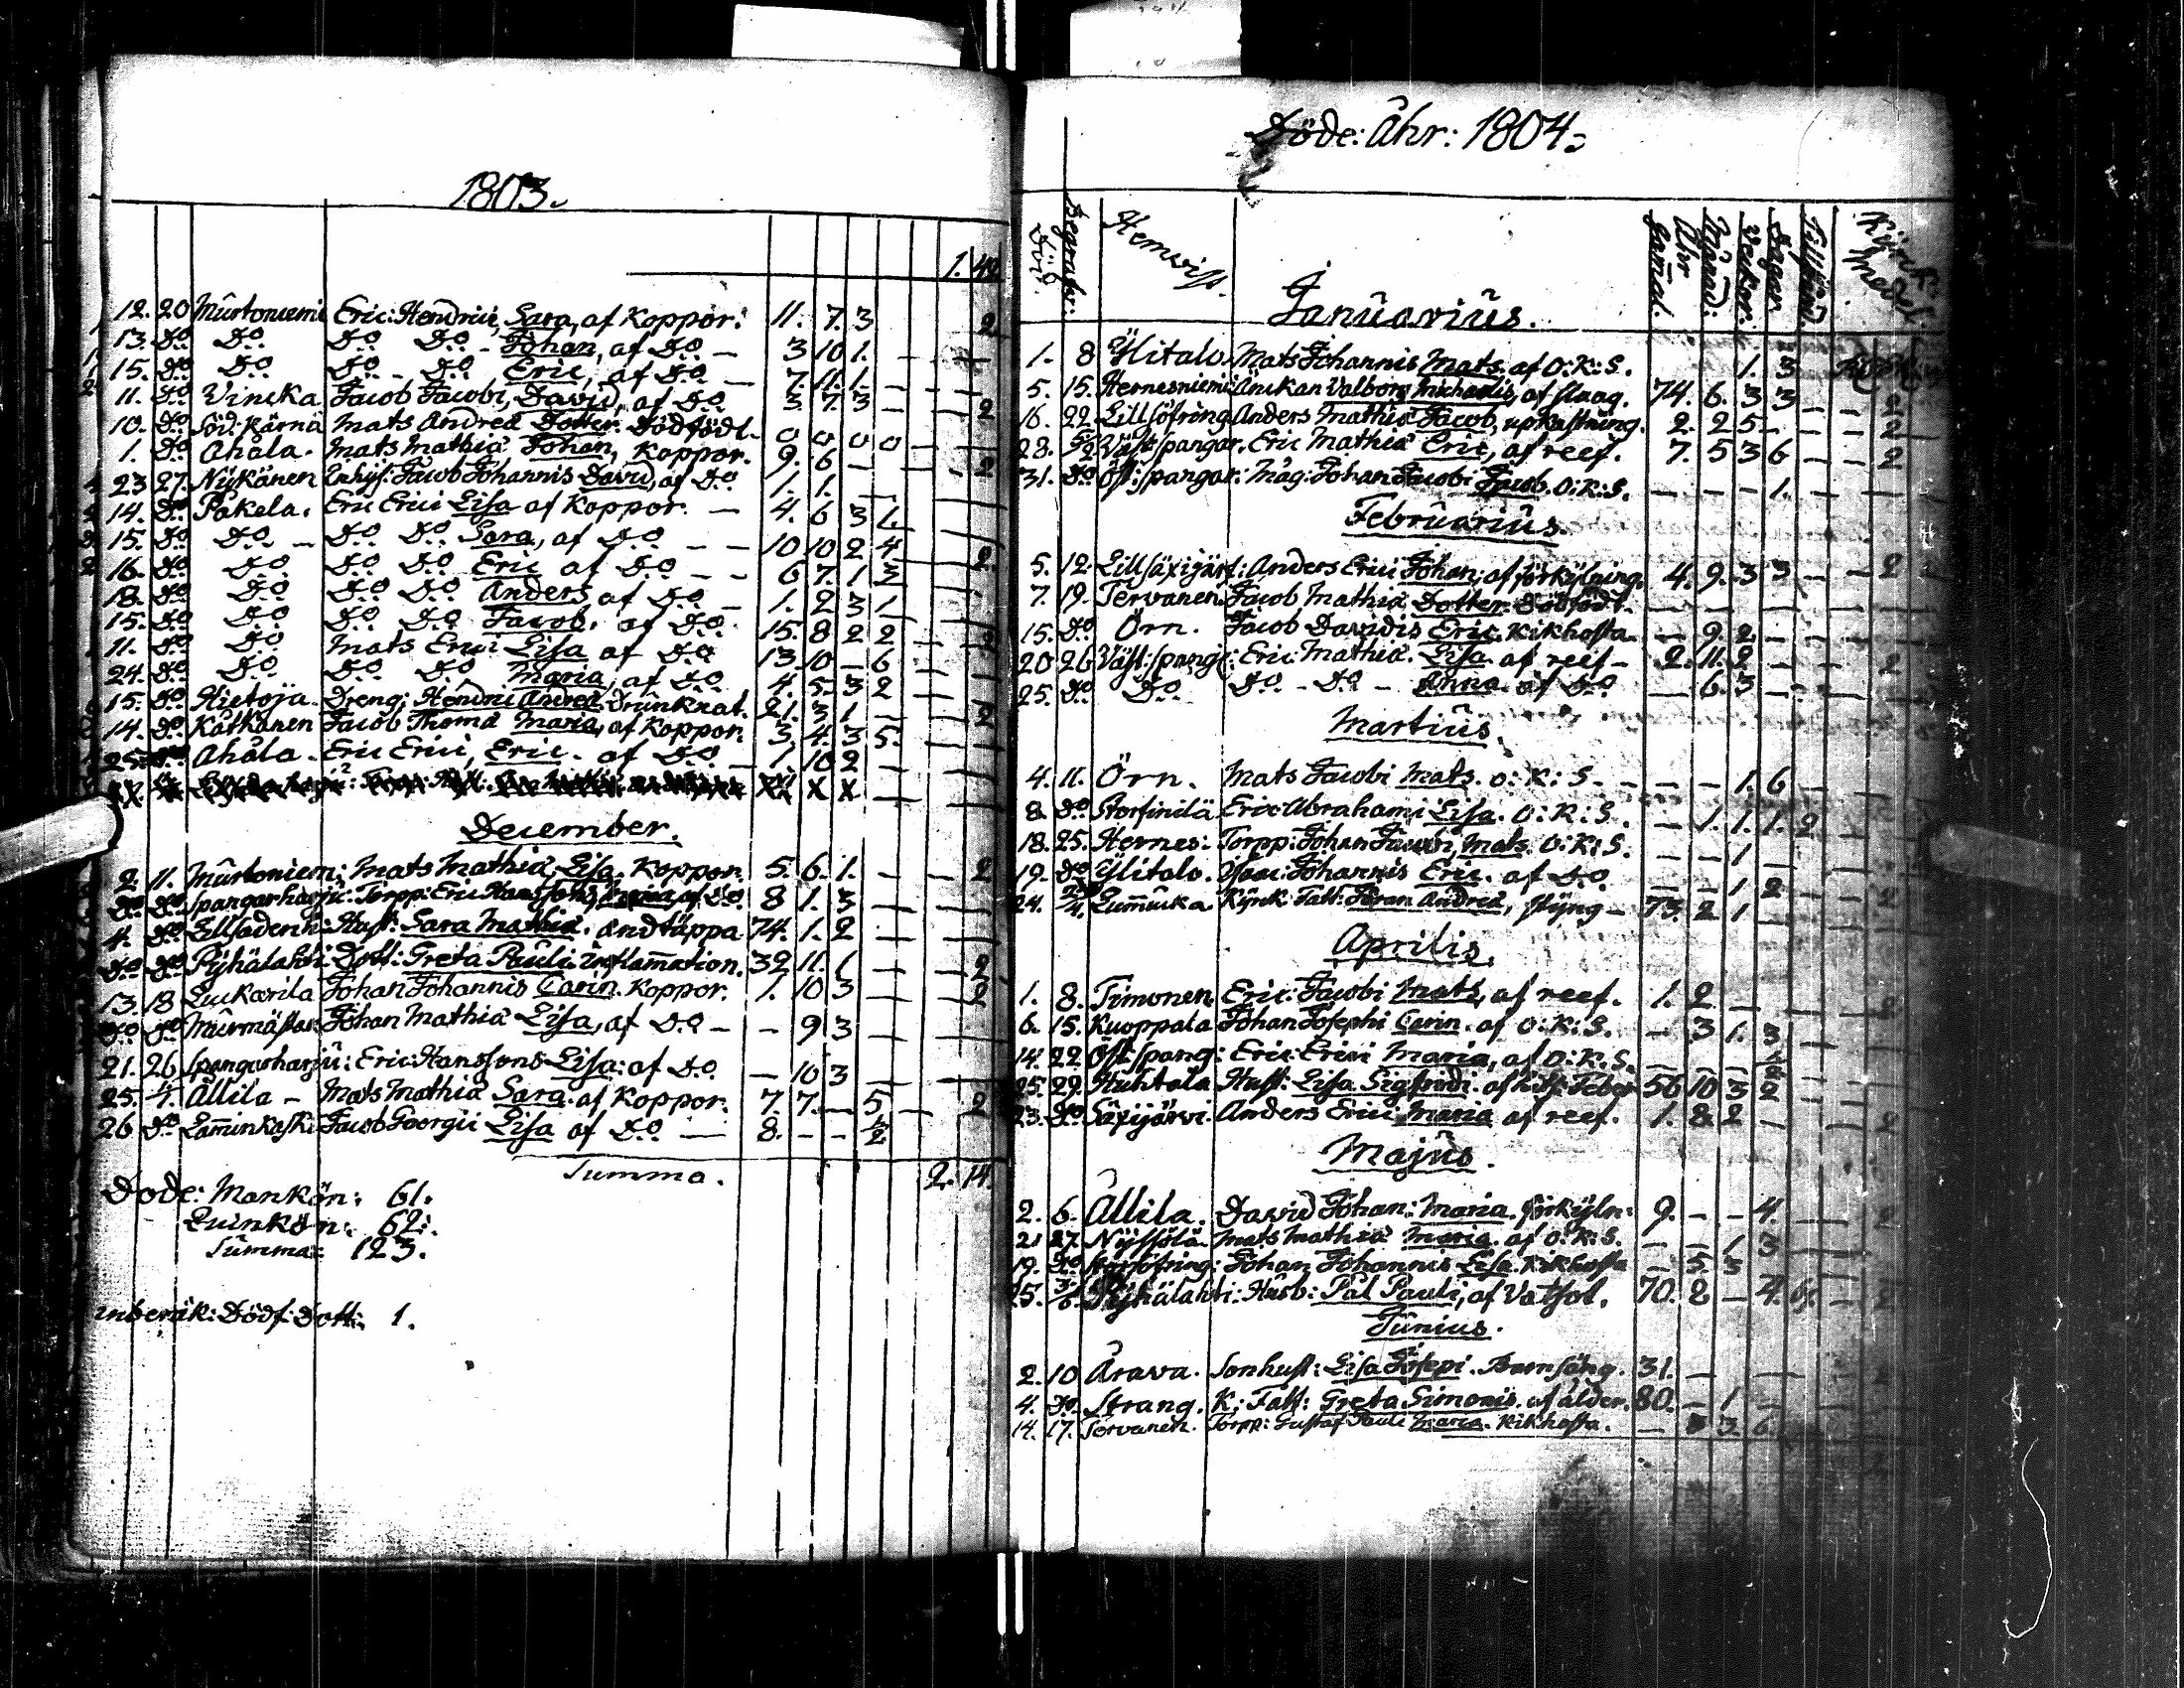 1803.
1. 42
12. 20 Murtoniemi Eric: Hendrici, Sara, af Koppor. 11. 7. 3 2
13. Do Do Do Do - Johan, af Do — 3 10 1. — —
15. Do Do Do - Do Eric, af Do — 7. 11. 1. — —
11. Do Vincka Jacob Jacobi, David, af Do 3. 7. 3 — — 2
10. Do Söd: Kärnä Mats Andreæ Dotter Dödfödt. 0 0 0 0 —
1. Do Ahåla. Mats Mathiæ Johan, Koppor. 9. 6 — — 2
23 27. Nykänen Inhys: Jacob Johannis David, af Do 1. 1. —
14. Do Pakela. Eric Erici Lisa af Koppor. — 4. 6 3 1.
15. Do Do — Do Do Sara, af Do — — 10 10 2 4 2.
16. Do Do Do Do Eric af Do — — 6 7. 1 3
18. Do Do Do Do Anders af Do — 1. 2 3 1
15. Do Do Do Do Jacob. af Do 15. 8 2 2 — 2
11. Do Do Mats Erici Lisa af Do 13. 10 — 6
24. Do Do Do Do Maria, af Do 4. 5. 3 2
15. Do Hietoja. Dreng: Hendric Andreæ Drunknat. 21. 3 1 — 2
14. Do Kätkänen Jacob Thomæ Maria, af Koppor. 3 4. 3 5.
25. Do Ahåla. Eric Erici, Eric. af Do — 1. 10 2 —
December.
2. 11. Murtoniem: Mats Mathiæ, Lisa. Koppor. 5. 6. 1. — — 2
Do Do Spangarharju: Torpp: Eric af Do 8 1. 3
4. Do Hust: Sara Mathiæ. andtäppa 74. 1. 2
Do Do Pyhälahti: Dott: Greta Pauli. Inflamation. 32 11. 1 — — 2
13. 18 Luckarila Johan Johannis Carin. Koppor. 1. 10 3 — — 2
Do Do Murmästar: Johan Mathiæ Lisa, af Do — — 9 3
21. 26 Spangarharju: Eric: Hanssons Lisa: af Do — 10 3
25. 1/1. Allila — Mats Mathiæ Sara. af Koppor. 7. 7. — 5 — 2
26 Do Jacob Georgii Lisa af Do — 8. — — 1/2
Summa. 2. 14.
Döde: Mankön: 61.
Quinkön: 62:
Summa: 123.
inberäk: Dödf: Dott: 1.
Döde: Åhr: 1804.
Död. Begrafn: Hemvist. Gamal. Åhr Månad: Veckor: Dagar. Kyrck: medel.
Januarius.
1. 8 Ylitalo. Mats Johannis Mats. af O: K: S. 1. 3
5. 15. Hernesniemi Änckan Valborg Michaelis, af slaag. 74. 6. 3 3 — — 2
16. 22. Lillsöfring Anders Mathiæ Jacob, upkastning. 2. 2 5 — — — 2
28. 5/2 Väst: spangar. Eric Mathiæ Eric, af reef. 7. 5 3 6 — — 2
31. Do Öst: spangar: Måg: Johan Jacobi Jacob. O: K: S. — — — 1. — —
Februarius.
5. 12. Lillsäxijärf: Anders Erici Johan, af förkylning. 4. 9. 3 3 — — 2
7. 19. Tervanen. Jacob Mathiæ Dotter Dödfödt. — — — —
15. Do Örn. Jacob Davidis Eric. Kikhosta. — 9. 2 —
20 26 Väst: spang: Eric: Mathiæ. Lisa. af reef — 2. 11. 2 — — 2
25. Do Do Do - Do — Anna. af Do — 6. 3 —
Martius.
4. 11. Örn. Mats Jacobi Mats. O: K: S. — — — 1. 6 —
8. Do Storfinilä Eric Abrahami Lisa. O: K: S. — 1. 1. 1. 2.
18. 25. Hernes: Torpp: Johan Jacobi, Mats. O: K: S. — — 1 —
19. Do Ylitalo. Isaac: Johannis Eric. af Do — — 1 2
24. Lummucka Kyrck: Fatt: Andreæ, styng — 73. 2 1 — 2
Aprilis.
1. 8. Timonen Eric: Jacobi Mats, af reef. 1. 2 — 2
6. 15. Kuoppala Johan Josephi Carin. af O: K: S. — 3 1. 3
14. 22. Öst: spang: Eric: Erici Maria, af O: K: S. — — — 1/2
25. 29. Huhtala Hust: Lisa Sigfridi. af hits: Feber 56 10 3 2
23. Do Säxijärvi. Anders Erici Maria af reef. 1. 8 2 — 2
Majus.
2. 6. Allila. David Johan: Maria. förkyln: 9. — — 4. — 2
21 27. Nyssölä. Mats Mathiæ Maria. af O: K: S. — — 1 3
19. Do Storsöfring: Johan Johannis Lisa. Kikhosta — 5. 3
25. 3/6. Pyhälahti: Husb: Pål Pauli, af Vatsot. 70. 2 — 4. 6. — 2
Junius.
2. 10 Arava. Sonhust: Lisa Josepi. Barnsäng. 31. — —
4. Do Strang. K: Fatt: Greta Simonis. af ålder. 80. — 1 —
14. 17. Tervanen. Torpp: Gustaf Pauli Maria. Kikhosta. — 3. 6.